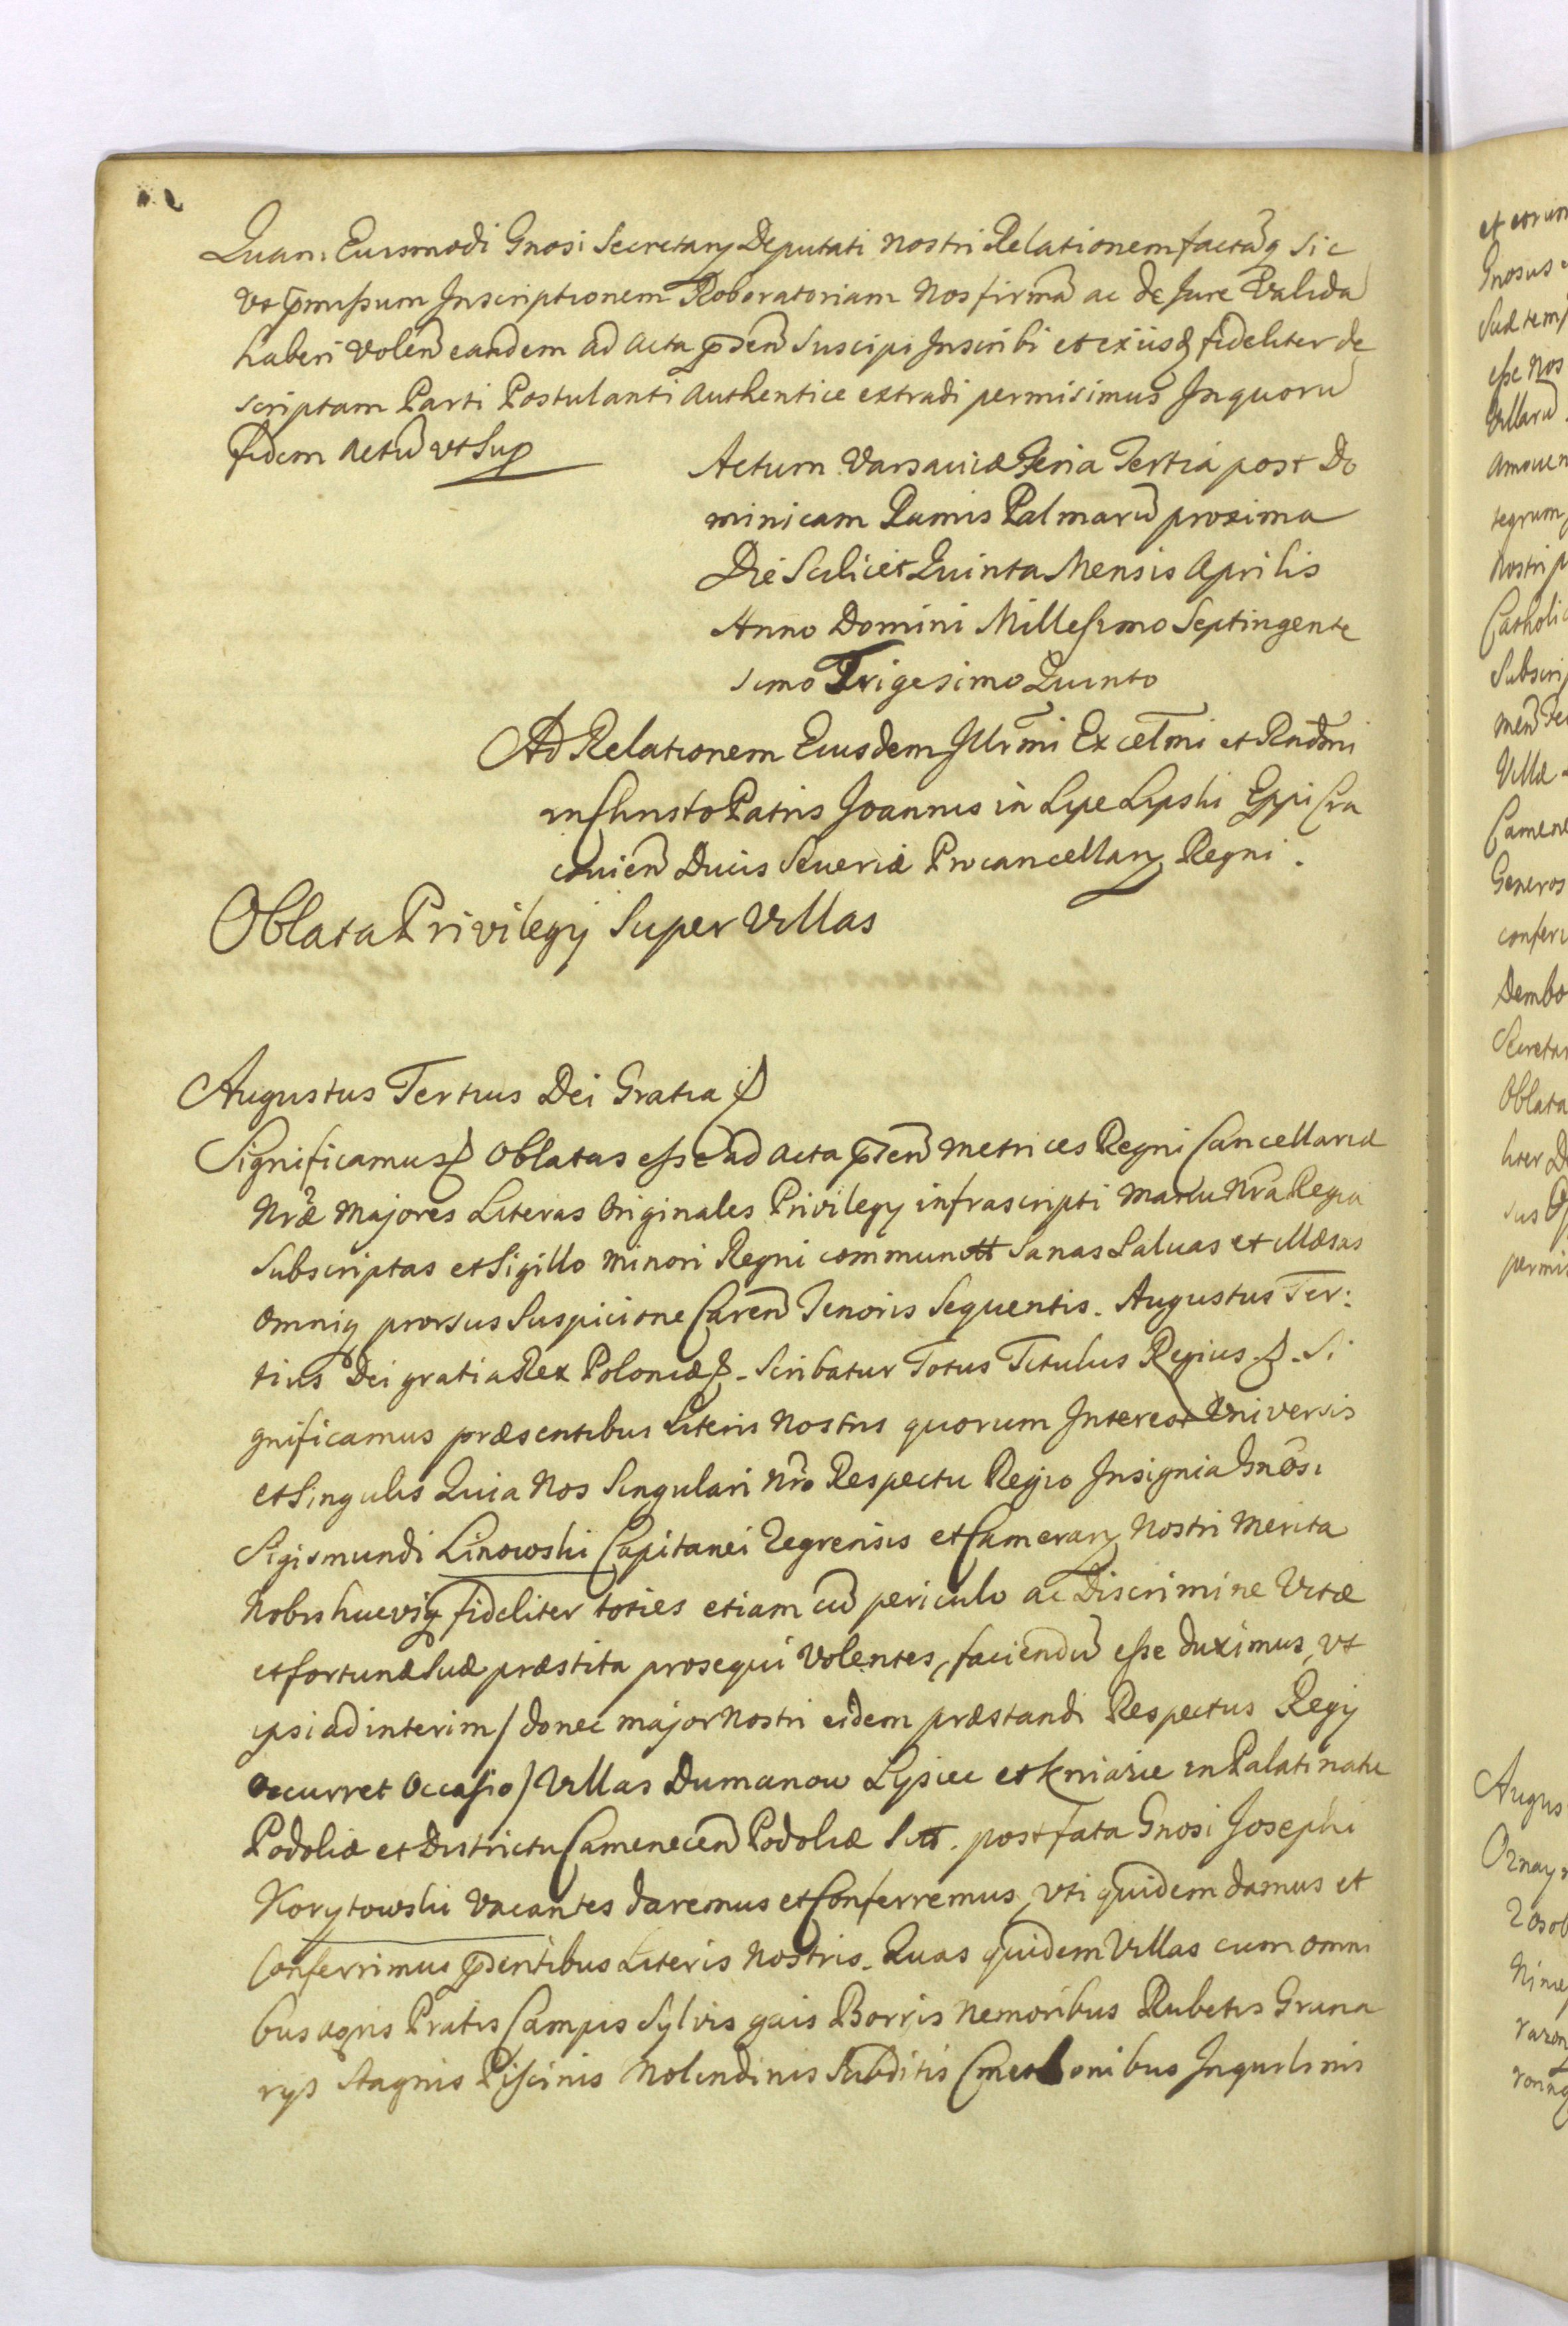 Quam Eiusmodi Gnosi Secretarÿ Deputati nostri Relationem factāq sic
vt p̄mißum Inscriptionem Roboratoriam Nos firmā ac de Jure Valida
haberi volen̄ eandem ad Acta p̄sen̄ Suscipi Inscribi et ex iisq fideliter de
scriptam Parti Postulanti Authentice extradi permisimus In quorū
fidem Actū vt Sup
Actum Varsaviæ Feria Tertia post Do
minicam Ramis Palmarū proxima
Die Scilicet Quinta Mensis Aprilis
Anno Domini Millesimo Septingente
simo Trigesimo Quinto
Ad Relationem Eiusdem Illr̄mi Excell̄mi et Rndm̄i
in Christo Patris Joannis in Lipe Lipski Eppi Cra
covien̄ Ducis Severiæ Procancellarÿ Regni.
Oblata Privilegÿ Super Villas
Augustus Tertius Dei Gratia
Significamus Oblatas esse ad Acta p̄sen̄ Metrices Regni Cancellariæ
Nr̄æ Majores Literas Originales Privilegÿ infrascripti Manu Nr̄a Regia
Subscriptas et Sigillo Minori Regni communitt Sanas Salvas et illæsas
Omniq prorsus Suspicione Caren̄ Tenoris Sequentis. Augustus Ter:
tius Dei gratia Rex Poloniæ. Scribatur Totus Titulus Regius. Si
gnificamus præsentibus Literis Nostris quorum Interest Universis
et Singulis Quia Nos Singulari Nr̄o Respectu Regio Insignia Gnōsi
Sigismundi Linowski Capitanei Zegrensis et Camerarÿ Nostri Merita
Nobis hucvsq fideliter toties etiam cū periculo ac Discrimine Vitæ
et fortunæ Suæ præstita prosequi Volentes, faciendū esse duximus, vt
ipsi ad interim / donec major Nostri eidem præstandi Respectus Regÿ
occurret Occasio / Villas Dumanow Lysiec et Kniazie in Palatinatu
Podoliæ et Districtu Camenecen̄ Podoliæ Sitt. post fata Gnosi Josephi
Korytowski vacantes daremus et Conferremus, vti quidem damus et
Conferrimus p̄sentibus Literis Nostris. Quas quidem Villas cum omni
bus agris Pratis Campis Sylvis gais Borris Nemoribus Rubetis Grana
rÿs Stagnis Piscinis Molendinis Subditis Cmetonibus Inquilinis